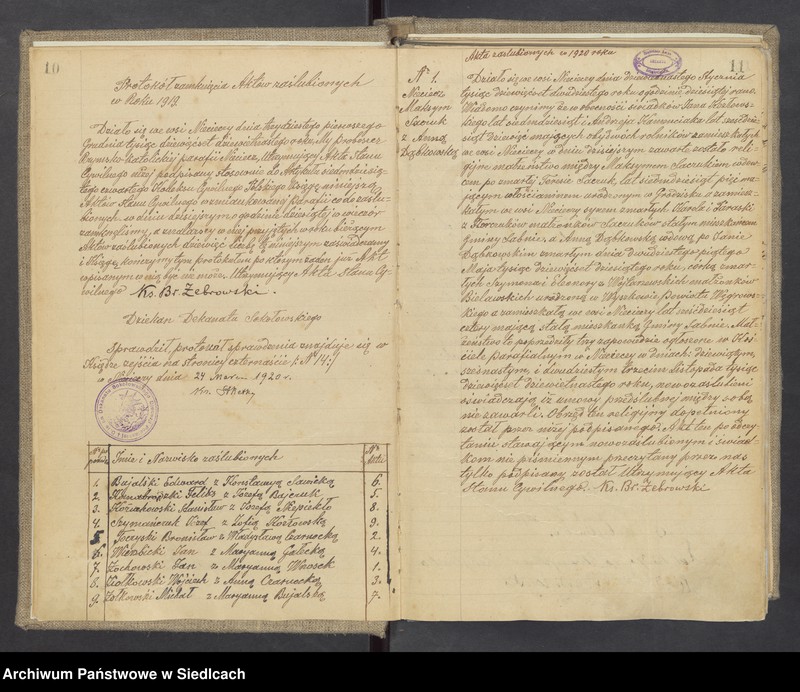 10
Protokół zamknięcia Aktów zaślubionych
w Roku 1919.
Działo się we wsi Nieciecy dnia trzydziestego pierwszego
Grudnia tysiąc dziewięćset dziewiętnastego roku, My proboszcz
Rzymsko-Katolickiej parafii Nieciecz, Utrzymujący Akta Stanu
Cywilnego niżej podpisany stosownie do Artykułu siedemdziesią-
tego czwartego Kodeksu Cywilnego Polskiego Księgę niniejszą
Aktów Stanu Cywilnego wzmiankowanej parafii co do zaślu-
bionych, w dniu dzisiejszym o godzinie dziewiątej wieczór
zamknęliśmy, a zeznalszy w niej przyjętych w roku bieżącym
Aktów zaślubionych dziewięć liczbę tą niniejszym zaświadczamy
i Księgę kończymy tym protokołem po którym żaden już Akt
wpisanym w nią być nie może. Utrzymujący Akta Stanu Cy-
wilnego Ks. Br. Żebrowski.
Dziekan Dekanatu Sokołowskiego
Sprawdził, protokół sprawdzenia znajduje się w
Księdze zejścia na stronicy czternaście (: № 14:)
w Nieciecy dnia 24 1920 r.
№ po
porządku
Imię i Nazwisko zaślubionych
№
Aktu
1. Bujalski Edward z Konstancyą Sawicką 6.
2. Feliks z Józefą Bajczuk 5.
3. Koziakowski Stanisław z Józefą Niepiekło 8.
4. Szymańczuk Józef z Zofią Kozłowską 9.
5. Toczyski Bronisław z Władysławą Czarnocką 2.
6. Wierzbicki Jan z Maryanną Gałecką 4.
7. Żochowski Jan z Maryanną Wrosek 1.
8. Ziołkowski Wojciech z Anną Czarnocką 3.
9. Żołkowski Michał z Maryanną Bujalską 7.
Akta zaślubionych w 1920 roku
11
№ 1.
Nieciecz
Maksym
Saciuk
z Anną
Dąbkowską
Działo się we wsi Nieciecy dnia dwunastego Stycznia
tysiąc dziewięćset dwudziestego roku o godzinie dziesiątej rano.
Wiadomo czynimy że w obecności świadków Jana Kozłows-
kiego lat osiemdziesiąt i Andrzeja lat sześćdzie-
siąt dziewięć mających obydwóch rolników zamieszkałych
we wsi Nieciecy w dniu dzisiejszym zawarte zostało reli-
gijne małżeństwo między Maksymem Saciukiem wdow-
cem po zmarłej Teresie Saciuk, lat siedemdziesiąt pięć ma-
jącym włościaninem urodzonym w Grodzisku a zamiesz-
kałym we wsi Nieciecy synem zmarłych Karola i Taraski
z małżonków Saciuków stałym mieszkańcem
Gminy Sabnie. a Anną Dąbkowską wdową po Janie
Dąbkowskim zmarłym dnia dwudziestego piątego
Maja tysiąc dziewięćset dziesiątego roku, córką zmar-
łych Szymona i Eleonory z Wojtarowskich małżonków
Bielawskich urodzoną w Wyszkowie Powiatu Węgrows-
kiego a zamieszkałą we wsi Nieciecy lat sześćdziesiąt
cztery mającą stałą mieszkanką Gminy Sabnie. Mał-
żeństwo to poprzedziły trzy zapowiedzie ogłoszone w Koś-
ciele parafialnym w Nieciecy w dniach: dziewiątym,
szesnastym, i dwudziestym trzecim Listopada tysiąc
dziewięćset dziewiętnastego roku, nowozaślubieni
oświadczają iż umowy przedślubnej między sobą
nie zawarli. Obrzęd ten religijny dopełniony
został przez niżej podpisanego. Akt ten po odczy-
taniu stawającym nowozaślubionym i świad-
kom nie piśmiennym przeczytany przez nas
tylko podpisany został Utrzymujący Akta
Stanu Cywilnego. Ks. Br. Żebrowski
Archiwum Państwowe w Siedlcach